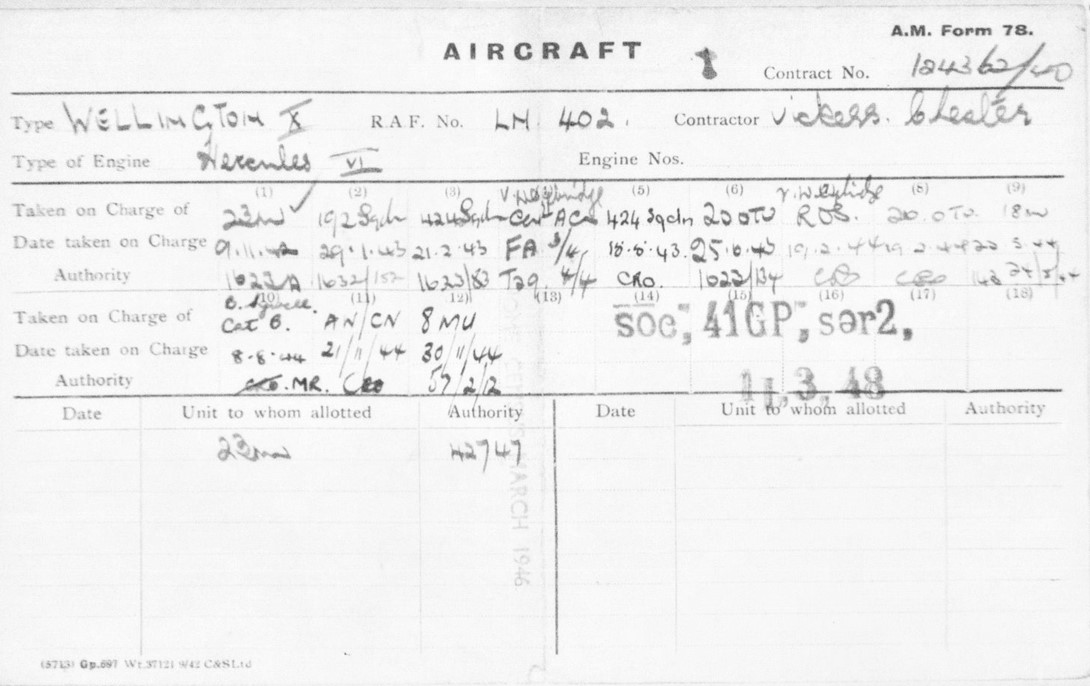 A.M. Form 78.
AIRCRAFT
Contract No. 124362/40
Type WELLINGTON X R.A.F. No. LN 402. Contractor Vickers. Chester
Type of Engine Hercules VI Engine Nos.
(1) (2) (3) (5) (6) (8) (9)
Taken on Charge of 23mu 192 Sqdn 424 Sqdn 424 Sqdn 20 OTU ROS. 20. OTU. 18m
Date taken on Charge 9.11.42 29.1.43 21.2.43 FA 3/4 18.8.43. 25.6.43 19.2.44
Authority 1623/2 1632/152 1623/83 T29 4/4 CRO. 1623/134 CRO CRO
(10) (11) (12) (13) (14) (15) (16) (17) (18)
Taken on Charge of Cat B. AN/CN 8 MU soc, 41GP, ser2,
Date taken on Charge 8.8.44 21/11/44 30/11/44
Authority MR. CRO 57/2/2 11.3.48
Date Unit to whom allotted Authority Date Unit to whom allotted Authority
23mu 42747
MARCH 1946
(5713) Gp.697 Wt.37121 9/42 C&S Ltd